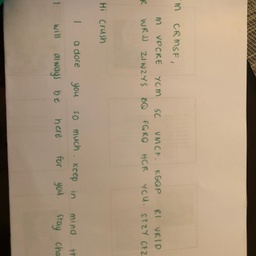 m CRMSF,
m VPCRE YCM SC VMCF. KGQP RI VRID
WRJJ ZJWZYS BQ FGRQ HCR YCU. STZY
Hi crush
I adore you so much. keep in mind
I will always be here for you stay